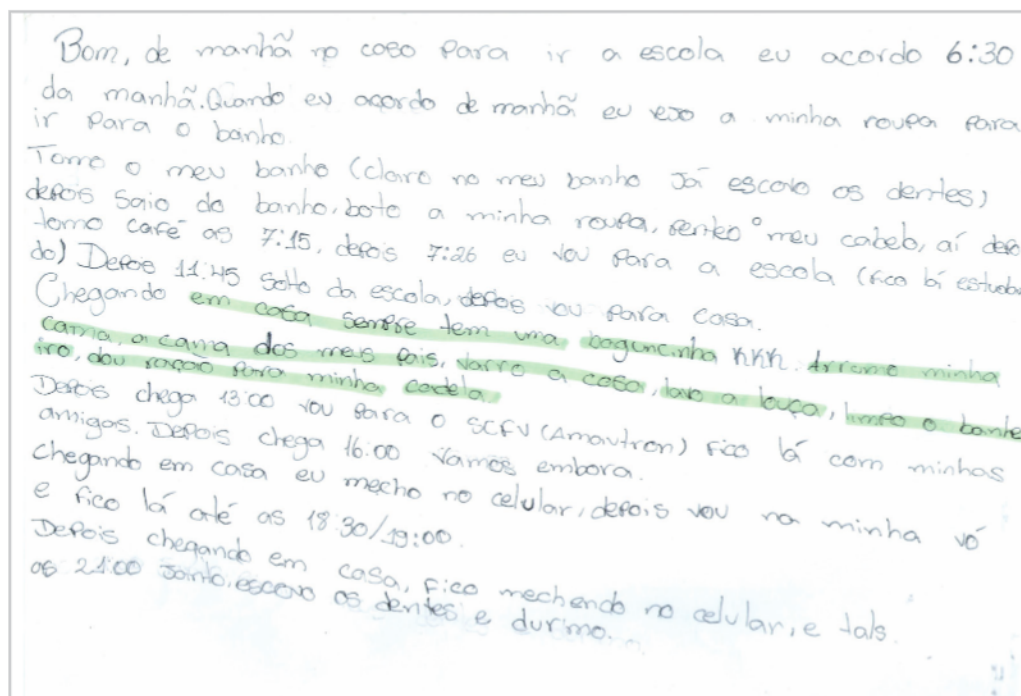 Bom, de manhã no caso para ir a escola eu acordo 6:30
da manhã. Quando eu acordo de manhã eu vejo a minha roupa para
ir para o banho.
Tomo o meu banho (claro no meu banho já escovo os dentes)
depois saio do banho, boto a minha roupa, penteo o meu cabelo, aí depo
tomo café as 7:15, depois 7:26 eu vou para a escola (fico lá estuda
do) Depois 11:45 solto da escola, depois vou para casa.
Chegando em casa sempre tem uma baguncinha kkk. Arrumo minha
cama, a cama dos meus pais, varro a casa, lavo a louça, limpo o banhe
iro, dou ração para minha cadela.
Depois chega 13:00 vou para o SCFV (Amautron) fico lá com minhas
amigas. Depois chega 16:00 vamos embora.
Chegando em casa eu mecho no celular, depois vou na minha vó
e fico lá até as 18:30/19:00.
Depois chegando em casa, fico mechendo no celular, e tals.
as 21:00 Jainto, escovo os dentes e durimo.